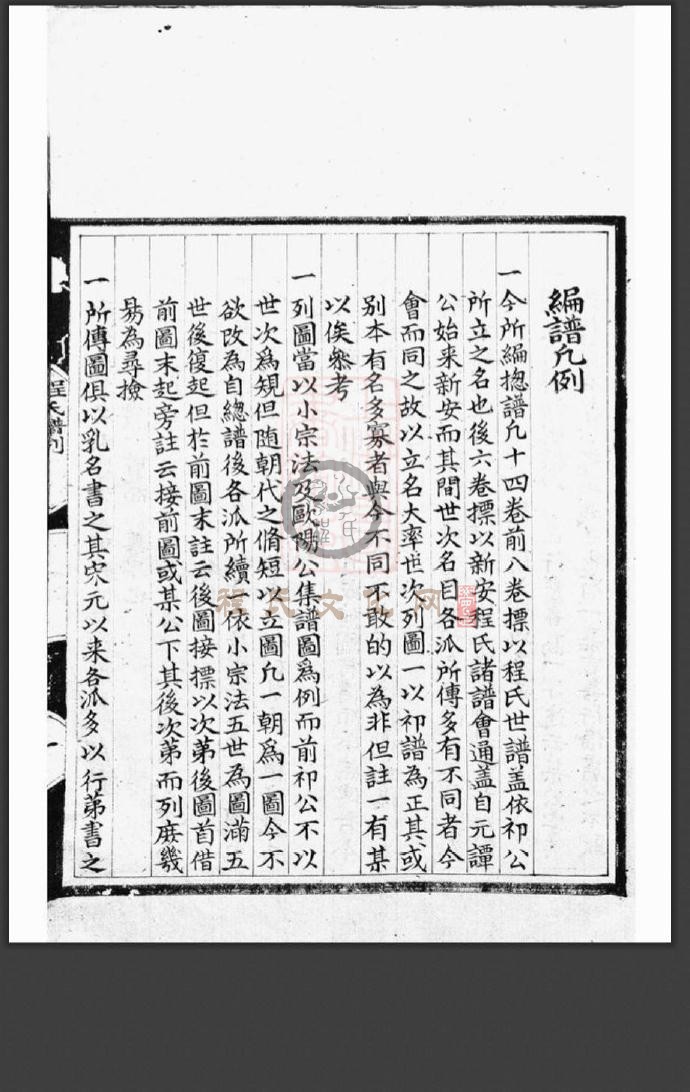 編譜凡例
一今所編揔譜凡十四卷前八卷摽以程氏世譜盖依祁公
所立之名也後六卷摽以新安程氏諸譜會通盖自元譚
公始来新安而其間世次名目各派所傳多有不同者今
會而同之故以立名大率世次列圖一以祁譜為正其或
别本有名多寡者與今不同不敢的以為非但註一有某
以俟叅考
一列圖當以小宗法及歐陽公集譜圖爲例而前祁公不以
世次爲規但随朝代之脩短以立圖凡一朝爲一圖今不
欲改為自總譜後各派所續一依小宗法五世為圖滿五
世後復起但於前圖末註云後圖接摽以次第後圖首借
前圖末起旁註云接前圖或某公下其後次第而列庶幾
易為尋撿
一所傳圖俱以乳名書之其宋元以来各派多以行第書之
程氏譜
程氏文化网